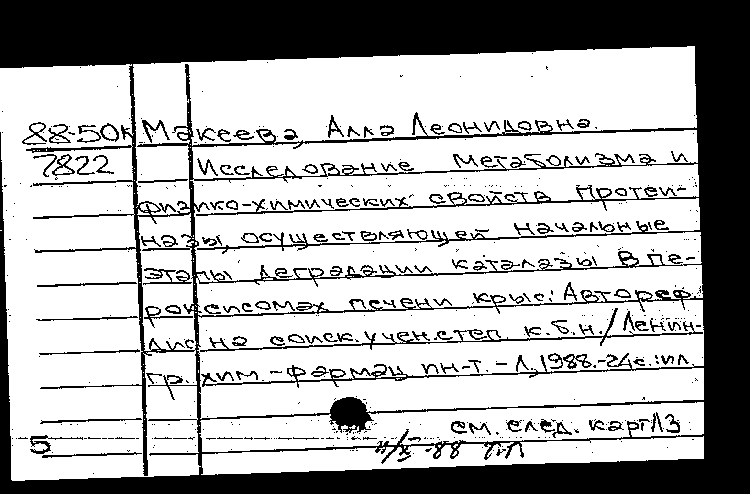 88-50к Макеева, Алла Леонидовна.
7822 Исследование метаболизма и
физико-химических свойств протеи-
назы, осуществляющей начальные
этапы деградации каталазы в пе-
роксисомах печени крыс: Автореф.
дис на соиск. учен. степ. к.б.н./Ленин-
гр. хим.-фармац. ин-т. - Л, 1988.-24с.:ил
см. след. карт/13
5